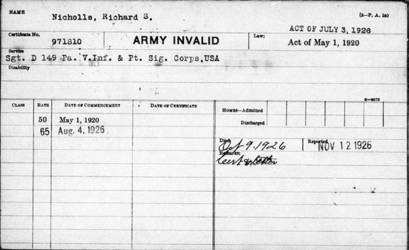 NAME Nicholls, Richard S. (3-P. A. 1a)
ACT OF JULY 3, 1926
Certificate No. 971810 ARMY INVALID Law: Act of May 1, 1920
Service Sgt. D 149 Pa. V.Inf. & Pt. Sig. Corps,USA
Disability
CLASS RATE DATE OF COMMENCEMENT DATE OF CERTIFICATE Homes—Admitted
Discharged
50 May 1, 1920
65 Aug. 4, 1926
Died Oct 9-1926 Reported NOV 12 1926
Remarks: